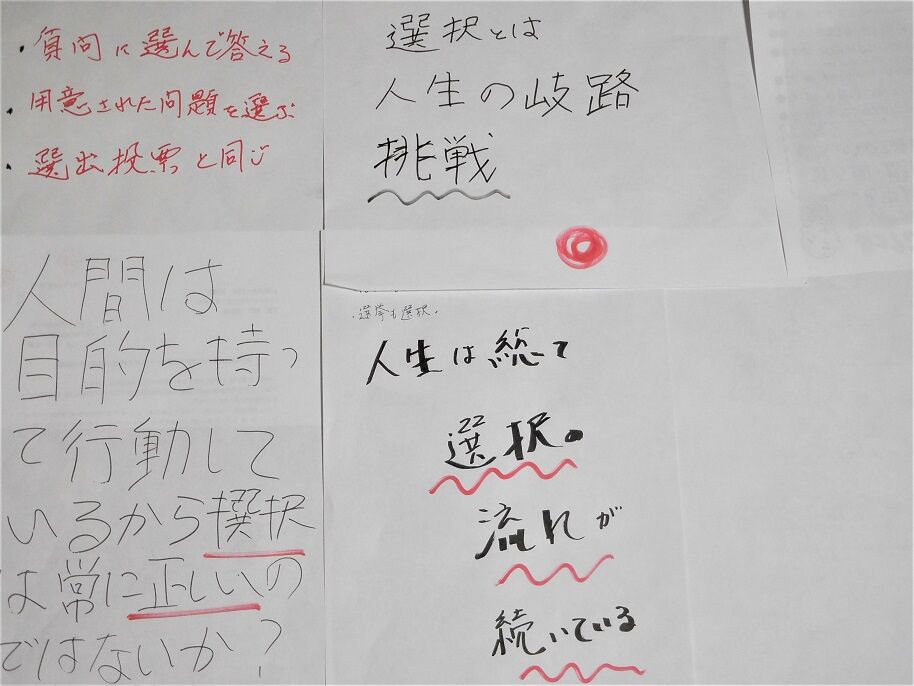 ・質問に選んで答える
・用意された問題を選ぶ
・選出投票と同じ
選択とは
人生の岐路
挑戦
人間は
目的を持っ
て行動して
いるから撰択
は常に正しいの
ではないか?
・選挙も選択・
人生は総て
選択。
流れが
続いている